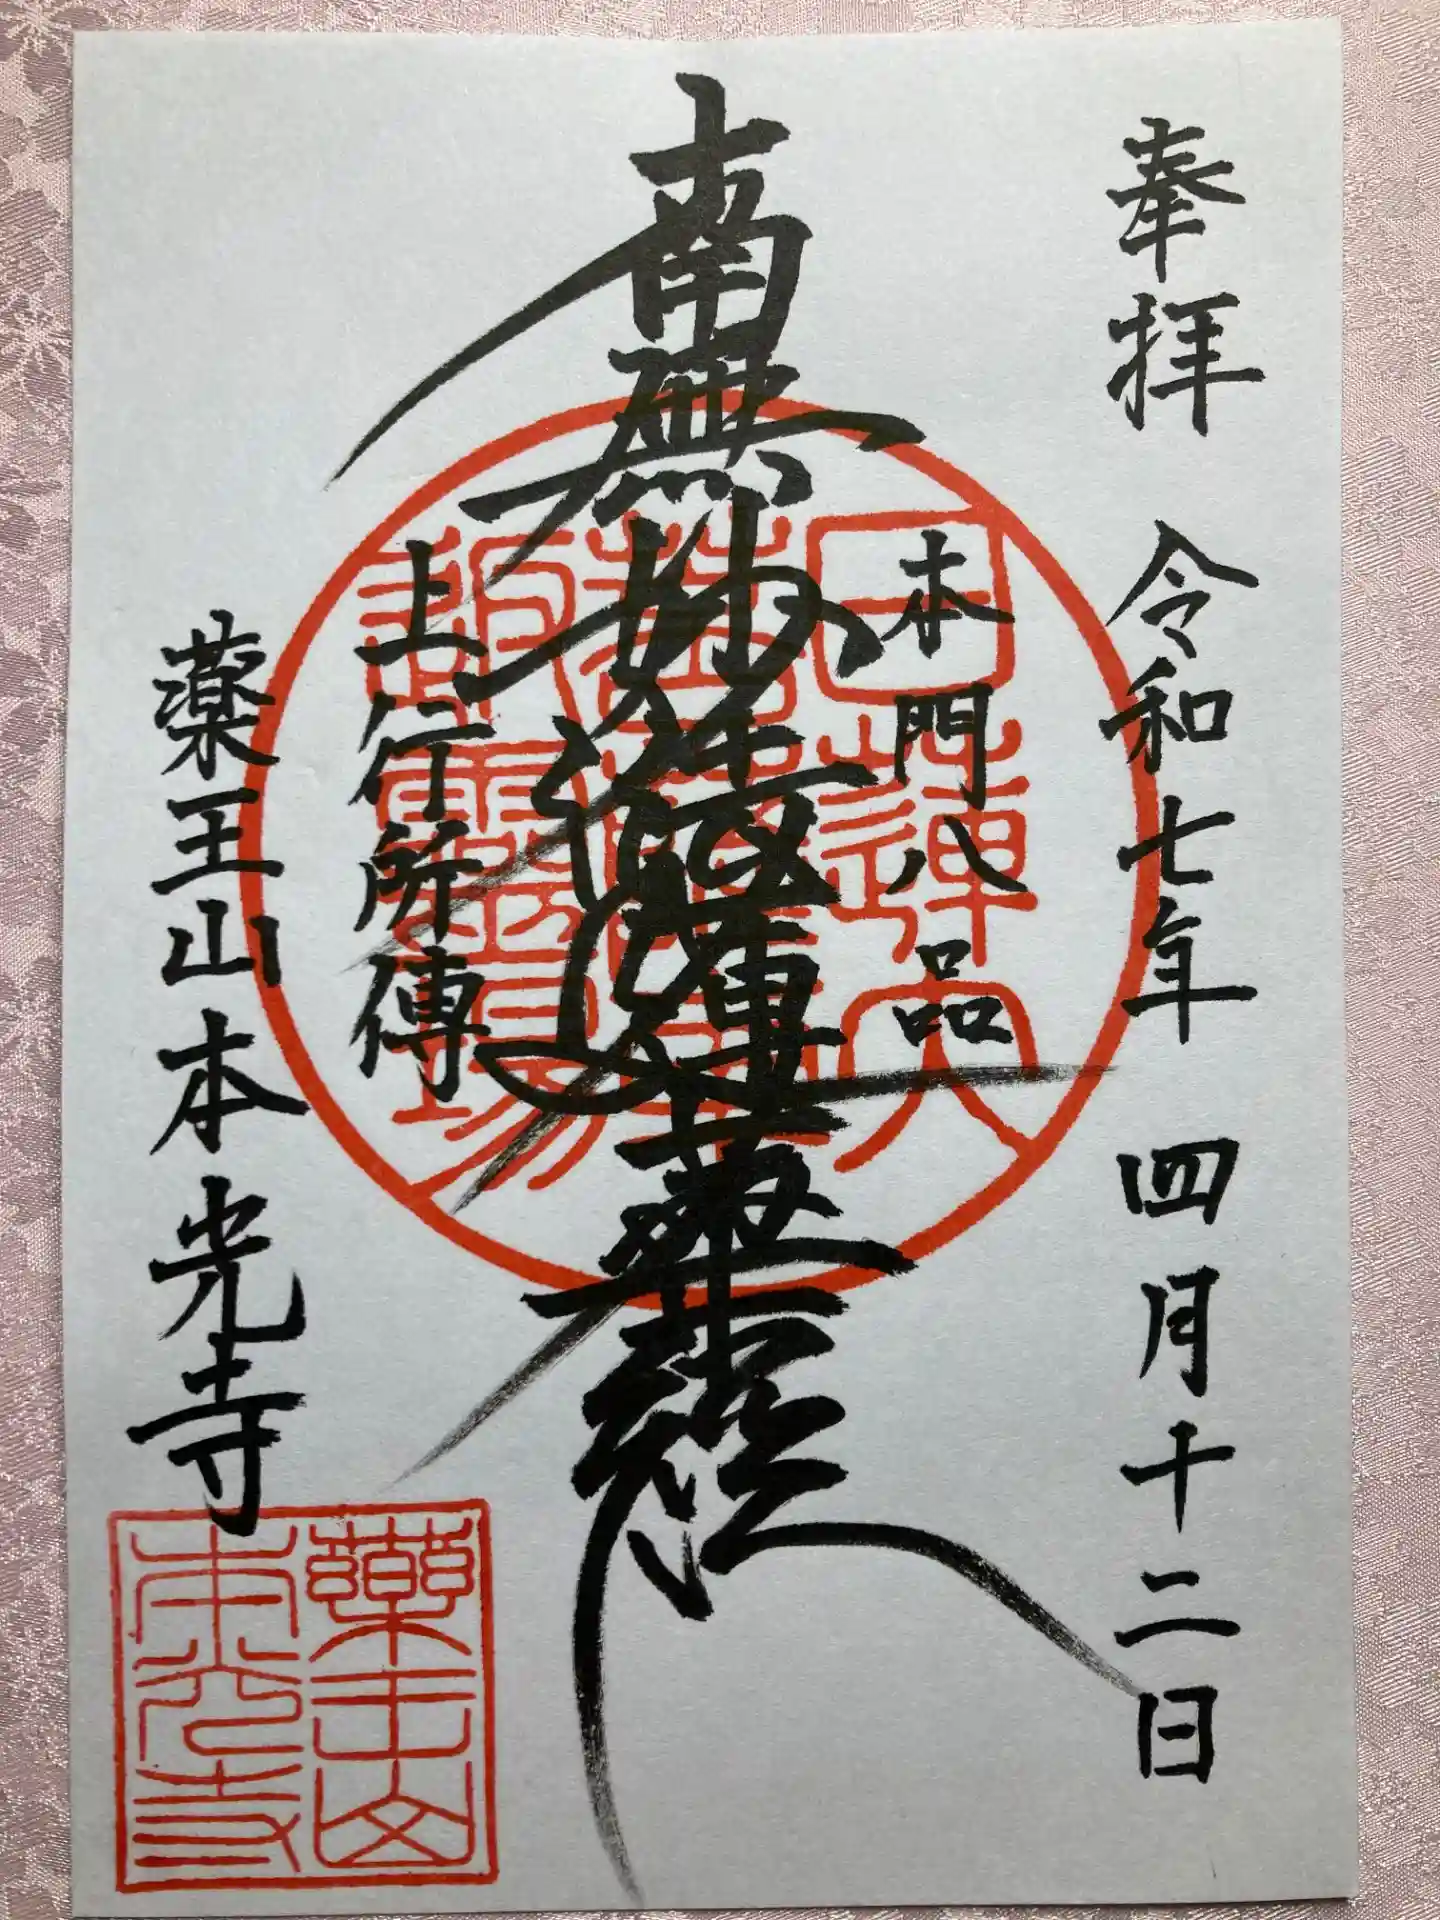 奉拝　令和七年　四月十二日
本門八品
南無妙法蓮華経
上行所傳
薬王山本光寺
薬王山
本光寺